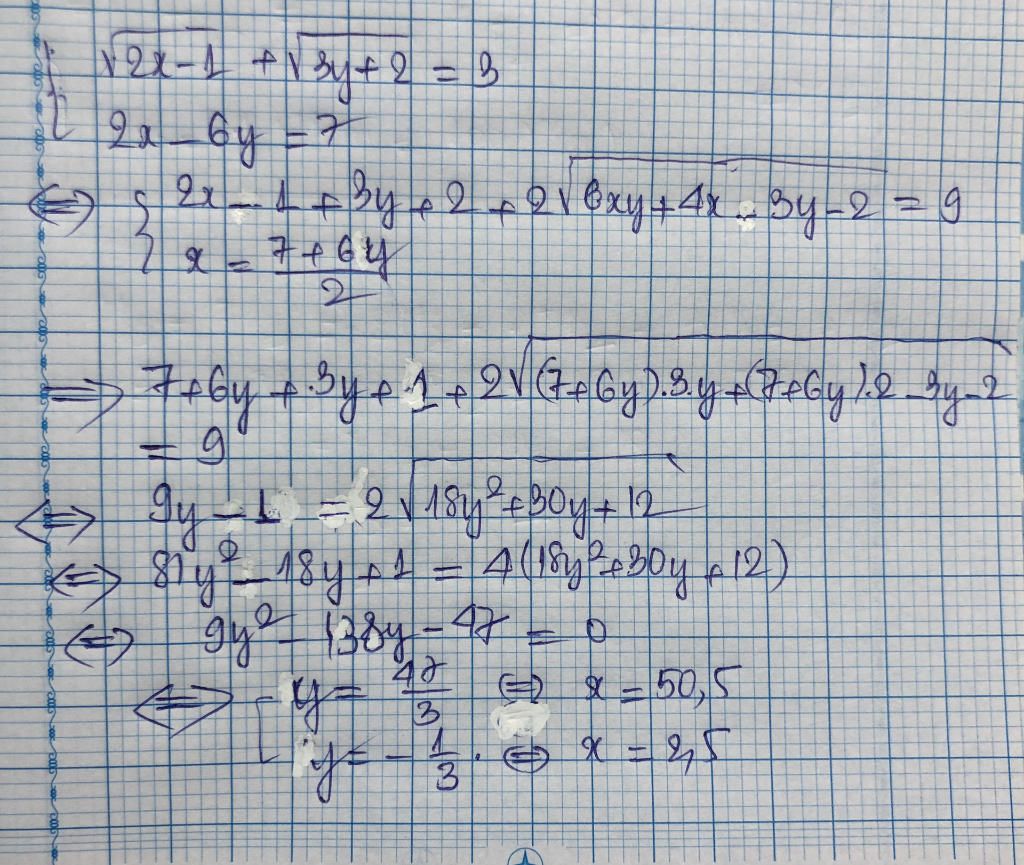 { √(2x-1) + √(3y+2) = 3
2x - 6y = 7
⇔ { 2x - 1 + 3y + 2 + 2√(6xy + 4x - 3y - 2) = 9
x = (7 + 6y)/2
⇒ 7 + 6y + 3y + 1 + 2√((7+6y).3.y + (7+6y).2 - 3y - 2)
= 9
⇔ 9y - 1 = 2√(18y² + 30y + 12)
⇔ 81y² - 18y + 1 = 4(18y² + 30y + 12)
⇔ 9y² - 138y - 47 = 0
⇔ [ y = 47/3 ⇔ x = 50,5
y = -1/3. ⇔ x = 2,5